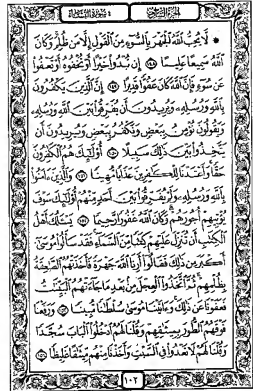 الجزء السادس سورة النساء
۞ لَّا يُحِبُّ ٱللَّهُ ٱلْجَهْرَ بِٱلسُّوٓءِ مِنَ ٱلْقَوْلِ إِلَّا مَن ظُلِمَ وَكَانَ
ٱللَّهُ سَمِيعًا عَلِيمًا ١٤٨ إِن تُبْدُوا۟ خَيْرًا أَوْ تُخْفُوهُ أَوْ تَعْفُوا۟
عَن سُوٓءٍ فَإِنَّ ٱللَّهَ كَانَ عَفُوًّا قَدِيرًا ١٤٩ إِنَّ ٱلَّذِينَ يَكْفُرُونَ
بِٱللَّهِ وَرُسُلِهِۦ وَيُرِيدُونَ أَن يُفَرِّقُوا۟ بَيْنَ ٱللَّهِ وَرُسُلِهِۦ
وَيَقُولُونَ نُؤْمِنُ بِبَعْضٍ وَنَكْفُرُ بِبَعْضٍ وَيُرِيدُونَ أَن
يَتَّخِذُوا۟ بَيْنَ ذَٰلِكَ سَبِيلًا ١٥٠ أُو۟لَٰٓئِكَ هُمُ ٱلْكَٰفِرُونَ
حَقًّا وَأَعْتَدْنَا لِلْكَٰفِرِينَ عَذَابًا مُّهِينًا ١٥١ وَٱلَّذِينَ ءَامَنُوا۟
بِٱللَّهِ وَرُسُلِهِۦ وَلَمْ يُفَرِّقُوا۟ بَيْنَ أَحَدٍ مِّنْهُمْ أُو۟لَٰٓئِكَ سَوْفَ
يُؤْتِيهِمْ أُجُورَهُمْ وَكَانَ ٱللَّهُ غَفُورًا رَّحِيمًا ١٥٢ يَسْـَٔلُكَ أَهْلُ
ٱلْكِتَٰبِ أَن تُنَزِّلَ عَلَيْهِمْ كِتَٰبًا مِّنَ ٱلسَّمَآءِ فَقَدْ سَأَلُوا۟ مُوسَىٰٓ
أَكْبَرَ مِن ذَٰلِكَ فَقَالُوٓا۟ أَرِنَا ٱللَّهَ جَهْرَةً فَأَخَذَتْهُمُ ٱلصَّٰعِقَةُ
بِظُلْمِهِمْ ثُمَّ ٱتَّخَذُوا۟ ٱلْعِجْلَ مِنۢ بَعْدِ مَا جَآءَتْهُمُ ٱلْبَيِّنَٰتُ
فَعَفَوْنَا عَن ذَٰلِكَ وَءَاتَيْنَا مُوسَىٰ سُلْطَٰنًا مُّبِينًا ١٥٣ وَرَفَعْنَا
فَوْقَهُمُ ٱلطُّورَ بِمِيثَٰقِهِمْ وَقُلْنَا لَهُمُ ٱدْخُلُوا۟ ٱلْبَابَ سُجَّدًا
وَقُلْنَا لَهُمْ لَا تَعْدُوا۟ فِى ٱلسَّبْتِ وَأَخَذْنَا مِنْهُم مِّيثَٰقًا غَلِيظًا ١٥٤
١٠٢